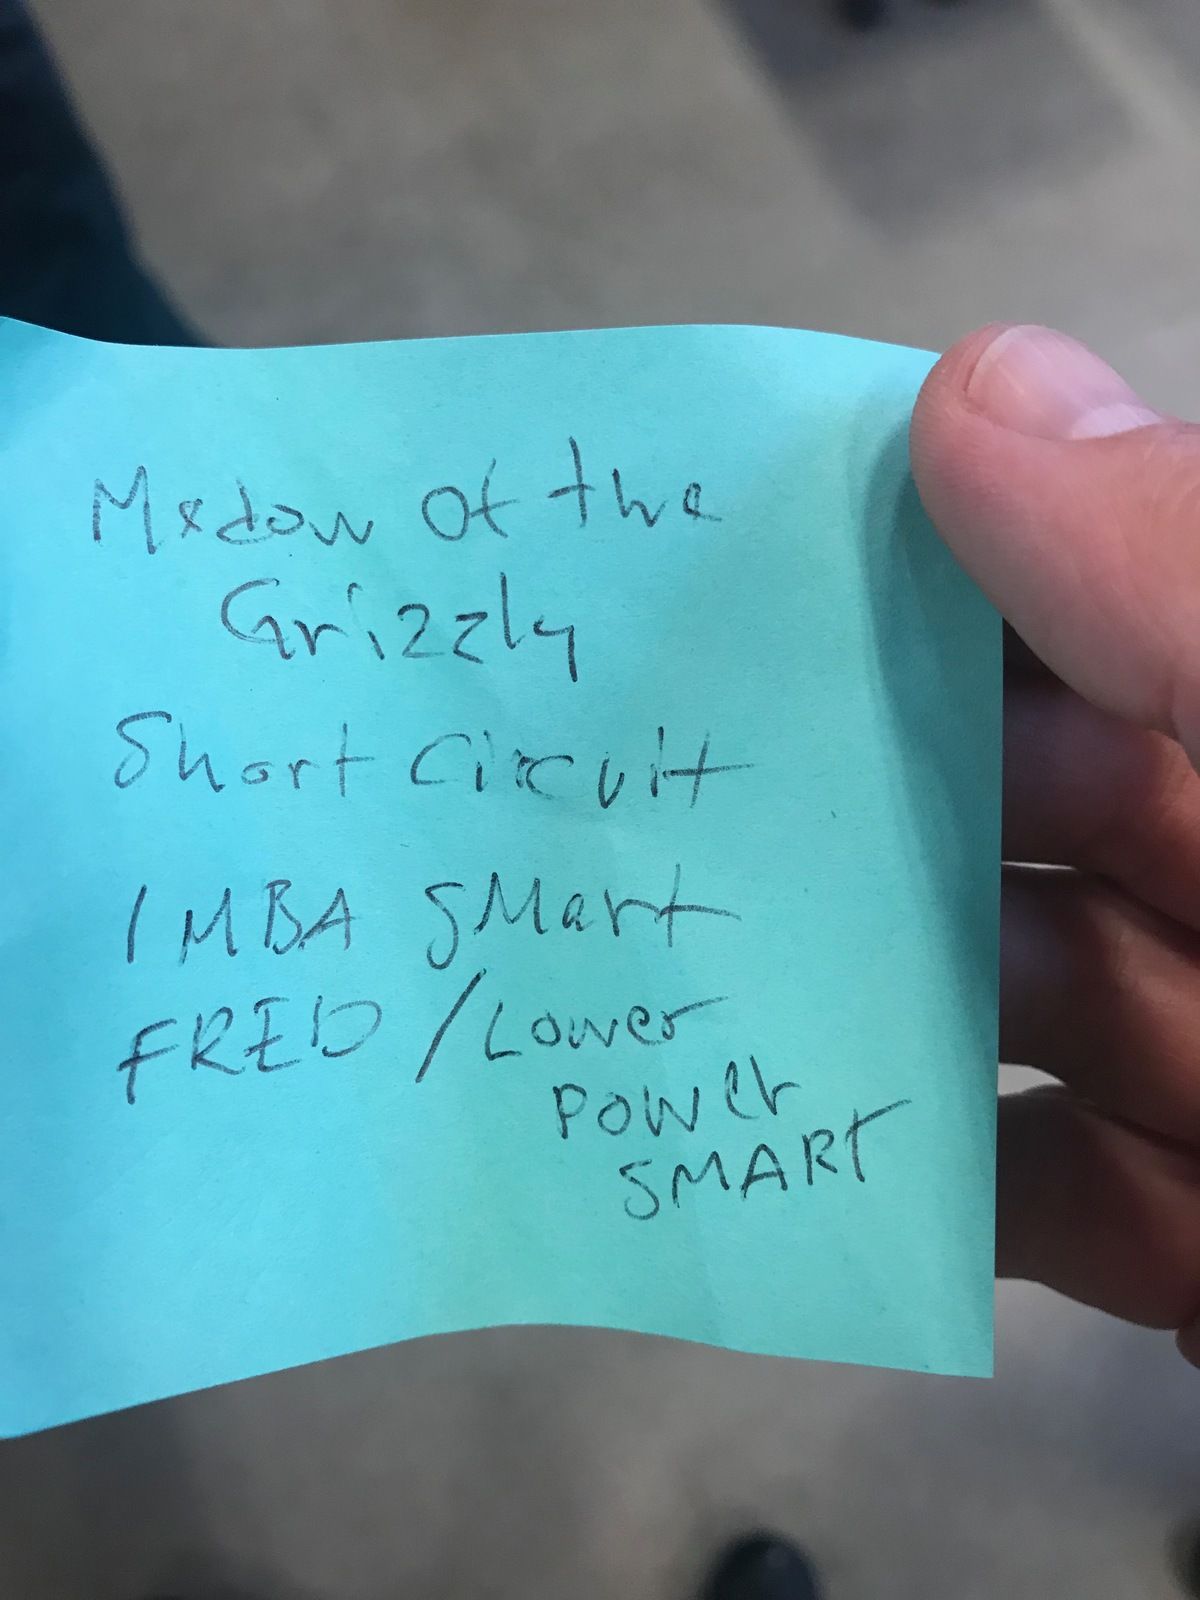 Medow Of the
Grizzly
Short Circuit
1 MBA SMart
FRED / Lower
Power
SMART